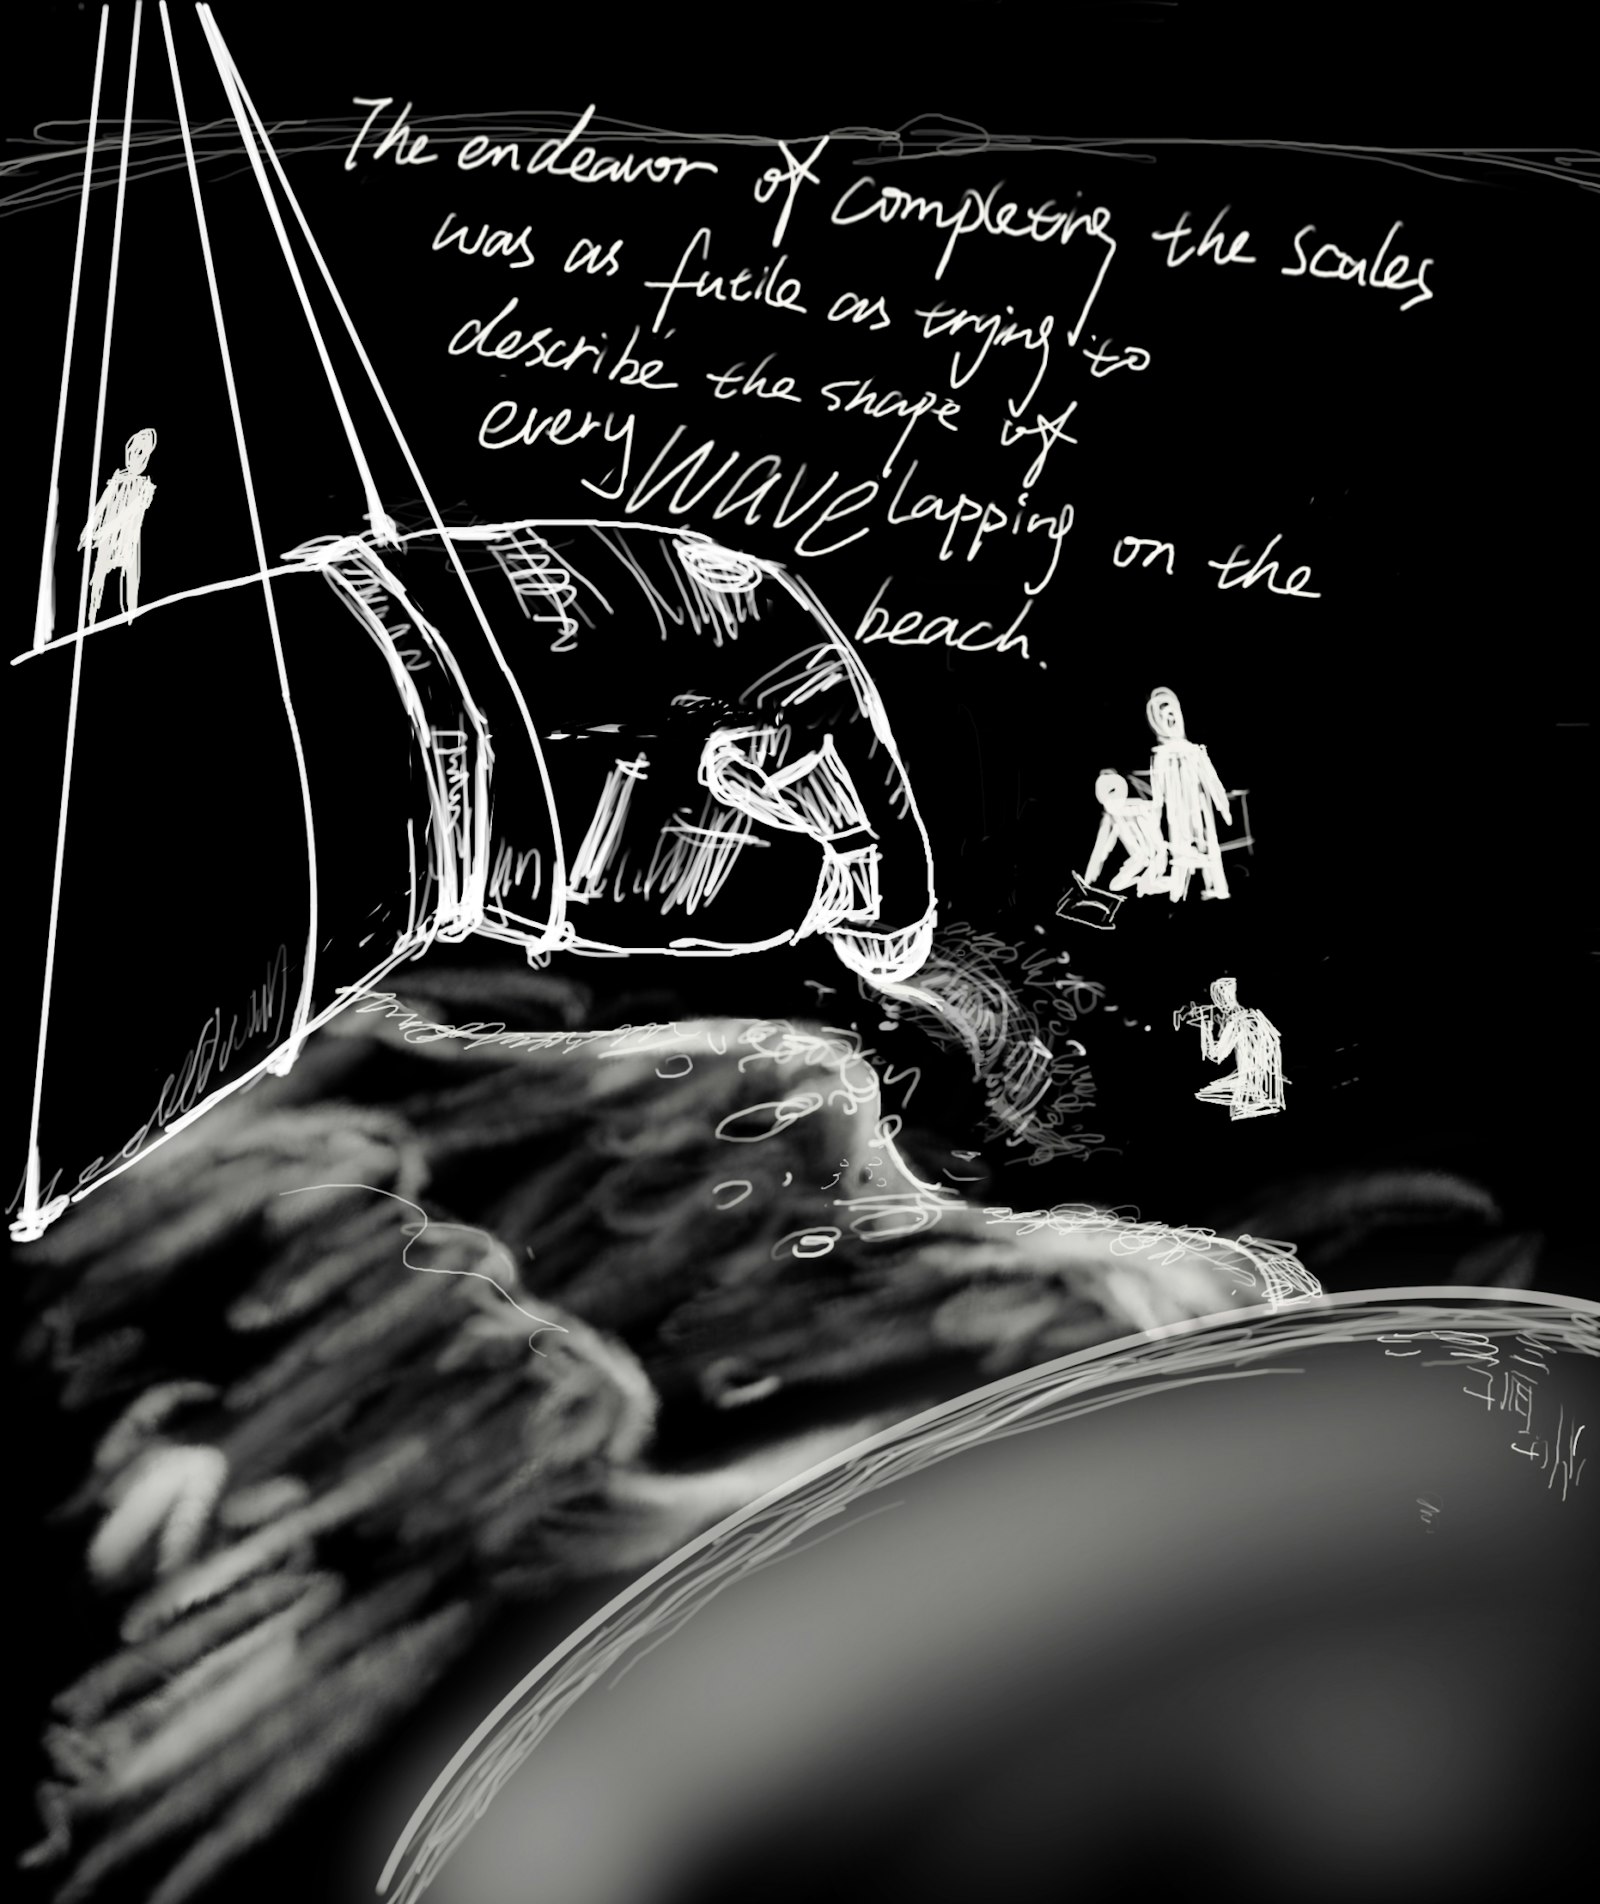 The endeavor of completing the scales
was as futile as trying to
describe the shape of
every wave lapping on the
beach.